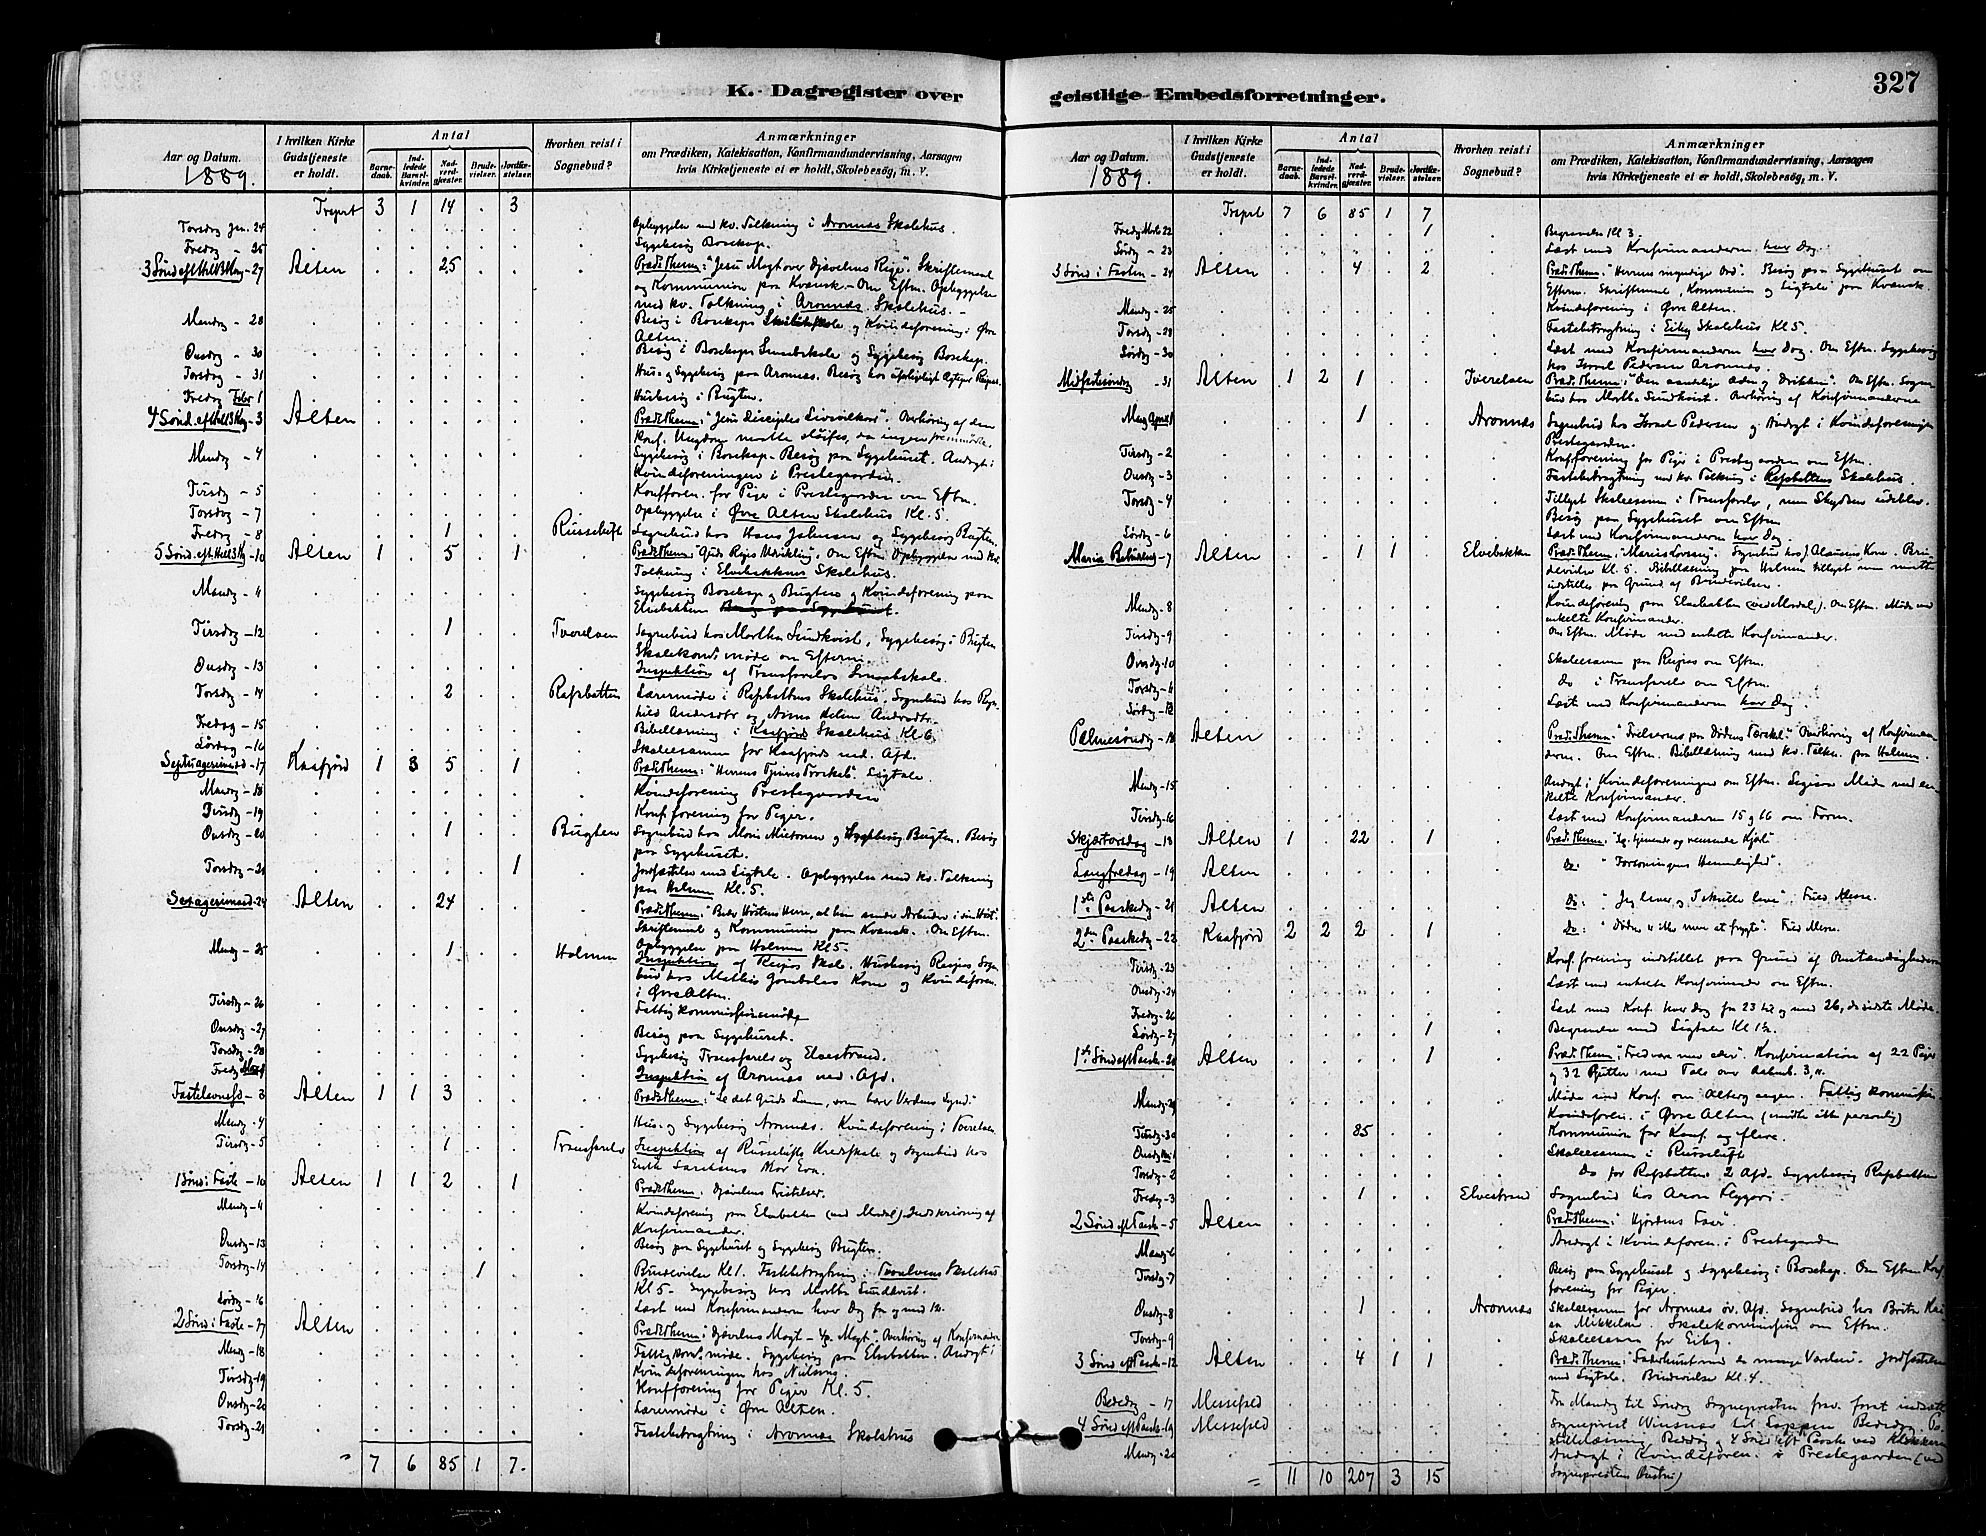 K. Dagregister over
Aar og Datum.
1889.
I hvilken Kirke Gudstjeneste er holdt.
Antal
Barnedaab.
Indledede Barselkvinder.
Nadverdgjæster.
Brudevielser.
Jordfæstelser.
Hvorhen reist i Sognebud?
Anmærkninger
om Prædiken, Katekisation, Konfirmandundervisning, Aarsagen
hvis Kirketjeneste ei er holdt, Skolebesøg, m. V.
Trsprt 3 1 14 . 3
Torsdag Jan. 24 Opbyggelse med kv. Tolkning i Aronnæs Skolehus.
Fredag - 25 Sygebesøg Bosekop.
3 Sønd eft Hell 3 Kg - 27 Alten . . 25 Præd: Thema: "Jesu Magt over Djævelens Rige". Skriftemaal
og Kommunion paa Kvænsk. - Om Eftm. Opbyggelse
med kv. Tolkning i Aronnæs Skolehus. -
Mandag - 28 Besøg i Bosekops og Kvindeforening i Øvre
Alten.
Onsdag - 30 Besøg i Bosekops Smaaskole og Sygebesøg Bosekop.
Torsdag - 31 Hus- og Sygebesøg paa Aronnæs. Besøg hos
Fredag Febr 1 Husbesøg i Bugten.
4 Sønd. eft Hell 3 Kg - 3 Alten Præd: Thema: "Jesu Disciples Livsvilkor". Overhøring af den
konf. Ungdom maatte sløifes, da ingen fremmødte.
Mandag - 4 Sygebesøg i Bosekop - Besøg paa Sygehuset. Andagt i
Kvindeforeningen i Prestegaarden.
Tirsdag - 5 Konfforen. for Piger i Prestegaarden om Eftm.
Torsdag - 7 Opbyggelse i Øvre Alten Skolehus Kl. 5.
Fredag - 8 . . 1 Russeluft Sognebud hos Hans Johansen og Sygebesøg Bugten.
5 Sønd. eft. Hell 3 Kg - 10 Alten 1 . 5 . 1 Præd: Thema: Guds Riges Udvikling. Om Eftm. Opbyggelse med kv.
Tolkning i Elvebakkens Skolehus.
Mandag - 11 Sygebesøg Bosekop og Bugten og Kvindeforening paa
Elvebakken
Tirsdag - 12 . . 1 Tverelven Sognebud hos Martha Sundkvist, Sygebesøg i Bugten
Skolekom. møde om Efterm.
Onsdag - 13 Inspektion af Transfarelvs Smaaskole.
Torsdag - 14 . . 2 Rafsbotten Lærermøde i Rafsbottens Skolehus, Sognebud hos
Andersdtr og Anna Helena Andersdtr.
Fredag - 15 Bibellæsning i Kaafjords Skolehus Kl 6.
Lørdag - 16 Skoleexamen for Kaafjords ned. Afd.
Septuagesimasd - 17 Kaafjord 1 3 5 . 1 Præd: Thema: "Herrens Tjeneres Trøskab". Ligtale.
Mandag - 18 Kvindeforening Prestegaarden
Tirsdag - 19 Konf. forening for Piger.
Onsdag - 20 . . 1 Bugten Sognebud hos og Sygebesøg Bugten. Besøg
paa Sygehuset.
Torsdag - 21 . . . . 1 Jordfæstelse med Ligtale. Opbyggelse med kv. Tolkning
paa Holmen Kl. 5.
Sexagesimasd - 24 Alten . . 24 Præd: Thema: "Beder Høstens Herre, at han sender Arbeidere i sin Høst".
Skriftemaal og Kommunion paa Kvænsk. Om Eftm.
Opbyggelse paa Holmen Kl 5.
Mandag - 25 . . 1 Holmen Inspektion af Reipas Skole. Husbesøg Reipas Sogne
bud hos Mathis Kone og Kvindeforen.
i Øvre Alten.
Tirsdag - 26 Fattigkommissionsmøde
Onsdag - 27 Besøg paa Sygehuset.
Torsdag - 28 Sygebesøg Transfarelv og Elvestrand.
Fredag Marts 1 Inspektion af Aronnæs ned. Afd.
Fastelavnssd - 3 Alten 1 1 3 Præd: Thema: "Se det Guds Lam, som bærer Verdens Synd."
Mandag - 4 Hus- og Sygebesøg Aronnæs. Kvindeforening i Tverelven
Tirsdag - 5 . . 1 Transfarelv Inspektion af Russelufts Kredsskole og Sognebud hos
Mor Eva.
1 Sønd i Faste - 10 Alten 1 1 2 . 1 Præd: Thema: Djævelens Fristelser.
Mandag - 11 Kvindeforening paa Elvebakken (ved Modal). Indskrivning af
Konfirmander.
Onsdag - 13 Besøg paa Sygehuset og Sygebesøg Bugten.
Torsdag - 14 . . . 1 Brudevielse Kl 1. Fastebetragtning i Tverelvens Skolehus
Kl 5 - Sygebesøg hos Martha Sundkvist.
Lørdag - 16 Læst med Konfirmanderne hver Dag fra og med 12.
2 Sønd i Faste - 17 Alten Præd: Thema: Djævelens Magt - Overhøring af Konfirmander
Mandag - 18 Fattigkom. møde. Sygebesøg paa Elvebakken. Andagt i
Kvindeforeningen hos Nielsens.
Tirsdag - 19 Konfforening for Piger Kl. 5.
Onsdag - 20 Lærermøde i Øvre Alten.
Torsdag - 21 Fastebetragtning i Aronnæs Skolehus
= 7 6 85 1 7.
geistlige Embedsforretninger.
327
Aar og Datum.
1889.
I hvilken Kirke Gudstjeneste er holdt.
Antal
Barnedaab.
Indledede Barselkvinder.
Nadverdgjæster.
Brudevielser.
Jordfæstelser.
Hvorhen reist i Sognebud?
Anmærkninger
om Prædiken, Katekisation, Konfirmandundervisning, Aarsagen
hvis Kirketjeneste ei er holdt, Skolebesøg, m. V.
Trsprt 7 6 85 1 7
Fredag Marts 22 . . . . 1 Begravelse Kl 3.
Lørdag - 23 Læst med Konfirmanderne hver Dag.
3 Sønd i Fasten - 24 Alten . . 4 . 2 Præd: Thema: "Herrens Ord". Besøg paa Sygehuset om
Efterm. Skriftemaal, Kommunion og Ligtale paa Kvænsk.
Mandag - 25 Kvindeforening i Øvre Alten.
Torsdag - 28 Fastebetragtning i Eiby Skolehus Kl 5.
Lørdag - 30 Læst med Konfirmanderne hver Dag. Om Eftm. Sygebesøg
hos Israel Pedersen Aronnæs.
Midfastesøndag - 31 Alten 1 2 1 Tverelven Præd: Thema: "Den aandelige Æden og Drikken". Om Eftm. Sogne
bud hos Martha Sundkvist. Overhøring af Konfirmanderne
Mandag April 1 . . 1 Aronnæs Sognebud hos Israel Pedersen og Andagt i Kvindeforeningen
Prestegaarden.
Tirsdag - 2 Konfforening for Piger i Prestegaarden om Eftm.
Onsdag - 3 Fastebetragtning med kv. Tolkning i Rafsbottens Skolehus.
Torsdag - 4 Tillyst Skoleexamen i Transfarelv, men Skydsen udeblev.
Besøg paa Sygehuset om Eftm
Lørdag - 6 Læst med Konfirmanderne hver Dag.
Maria Bebudelse - 7 Alten . . 1 1 Elvebakken Præd: Thema: "Marias Lovsang". Sognebud hos J. Clausens Kone. Bru
devielse Kl. 5. Bibellæsning paa Holmen tillyst men maatte
indstilles paa Grund af Brudevielsen.
Mandag - 8 Kvindeforening paa Elvebakken (ved Modal). Om Eftm. Møde med
enkelte Konfirmander.
Tirsdag - 9 Om Eftm. Møde med enkelte Konfirmander.
Onsdag - 10 Skoleexamen paa Reipas om Eftm.
Torsdag - 11 Do i Transfarelv om Eftm.
Lørdag - 13 Læst med Konfirmanderne hver Dag.
Palmesøndag - 14 Alten Præd: Thema: "Frelserens paa Dødens Tærskel". Overhøring af Konfirman
derne. Om Eftm. Bibellæsning med kv. Tolkn. paa Holmen.
Mandag - 15 Andagt i Kvindeforeningen om Eftm. Ligesaa Møde med en-
kelte Konfirmander.
Tirsdag - 16 Læst med Konfirmanderne 15 og 16 om Form.
Skjærtorsdag - 18 Alten 1 . 22 . 1 Præd: Thema: tjenende og rensende Kjærl"
Langfredag - 19 Alten Do: "Forsoningens Hemmelighed".
1ste Paaskedag - 21 Alten Do: "Jeg lever, og I skulle leve". Fuld Messe.
2den Paaskedag - 22 Kaafjord 2 2 2 . 1 Do: "Døden er ikke mere at frygte". Fuld Messe.
Tirsdag - 23 Konf. forening indstillet paa Grund af Omstændighederne
Onsdag - 24 Læst med enkelte Konfirmander om Eftm.
Fredag - 26 Læst med Konf. hver Dag fra 23 til og med 26, da sidste Møde.
Lørdag - 27 . . . . 1 Begravelse med Ligtale Kl 1½.
1ste Sønd eft Paaske - 28 Alten . . . . 1 Præd: Thema: "Fred være med eder". Konfirmation af 22 Piger
og 32 Gutter med Tale over Aabenb. 3, 11.
Mandag - 29 Møde med Konf. om Fattigkommission
Kvindeforen. i Øvre Alten (mødte ikke personlig)
Tirsdag - 30 . . 85 Kommunion for Konf. og flere.
Onsdag Mai 1 Skoleexamen i Russeluft
Torsdag - 2 Do for Rafsbottens 2 Afd. Sygebesøg Rafsbotten
Fredag - 3 . . 1 Elvestrand Sognebud hos Aron Flygari.
2 Sønd eft Paaske - 5 Alten Præd: Thema: "Hjordens Faar".
Mandag - 6 Andagt i Kvindeforen. i Prestegaarden
Tirsdag - 7 Besøg paa Sygehuset og Sygebesøg i Bosekop. Om Eftm Konf.
forening for Piger.
Onsdag - 8 . . 1 Aronnæs Skoleexamen for Aronnæs øv. Afd. Sognebud hos Brita
Mikkelsen. Skolekommission om Eftm.
Torsdag - 9 Skoleexamen for Eiby.
3 Sønd eft Paaske - 12 Alten . . 4 1 1 Præd: Thema: "Faderhuset med de mange Værelser". Jordfæstelse
med Ligtale. Brudevielse Kl. 4.
Fra Mandag til Søndag Sognepresten frav. foret indsætte
Bededag - 17 Messefald Sogneprest Winsnæs til Loppen. Bededag
4 Sønd eft Paaske - 19 Messefald Bededag og 4 Sønd eft Paaske ved Klokkeren
Mandag - 20 Andagt i Kvindeforen. i Prestegaarden (ved
Sogneprestens Hustru)
= 11 10 207 3 15